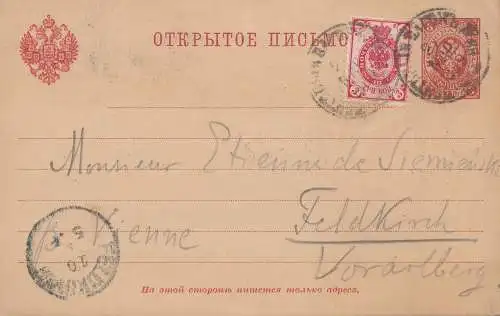 ОТКРЫТОЕ ПИСЬМО
Monsieur Etienne de
Feldkirch
Vienne
Vorarlberg
На этой сторонѣ пишется только адресъ.